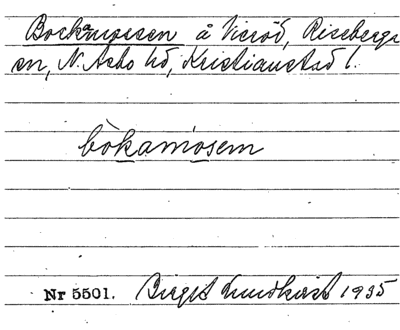 Bockamossen å Vieröd, Riseberga
sn, N. Åsbo hd, Kristianstad l.
bòkamósem
Nr 5501. Birgit Lundkvist 1935